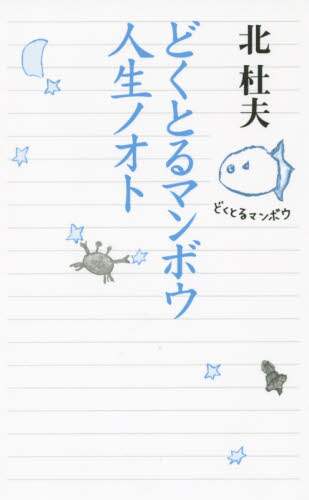 北杜夫
どくとるマンボウ
人生ノオト
どくとるマンボウ